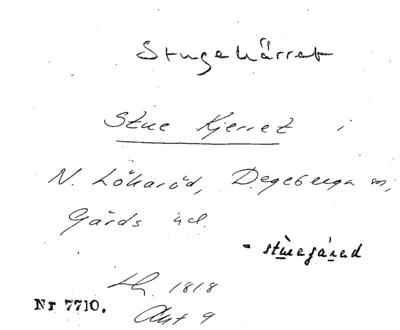 Stugekärret
Stue Kjerret i
N. Lökaröd, Degeberga sn,
Gärds hd.
- stuegåred
Lh. 1818
Akt 9
Nr 7710.